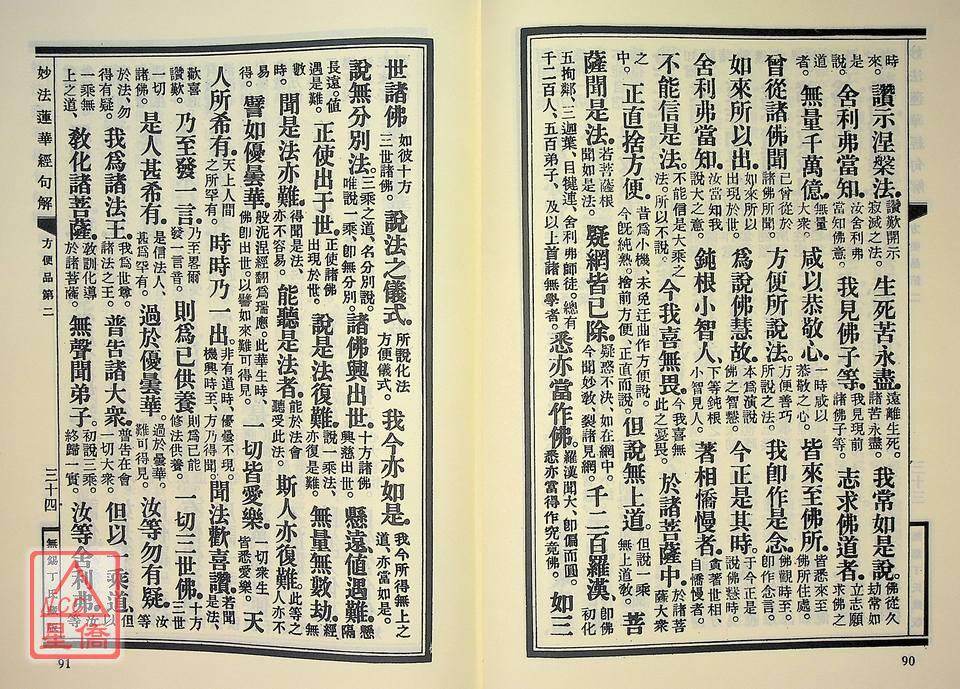 時
來。讚示涅槃法。讚歎開示寂滅之法。生死苦永盡。遠離生死。諸苦永盡。我常如是說。佛從久劫常如
是說。舍利弗當知。汝舍利弗當知佛意。我見佛子等。我見現前諸佛子等。志求佛道者。立志願求佛之
道者。無量千萬億。無量大衆。咸以恭敬心。一時咸以恭敬之心。皆來至佛所。皆悉來至佛所住處。
曾從諸佛聞。已曾從於諸佛所聞。方便所說法。方便善巧所說之法。我卽作是念。佛觀時至。卽作念言。
如來所以出。如來所以出現於世。爲說佛慧故。本爲演說佛之智慧。今正是其時。于今正是說佛慧時。
舍利弗當知。汝當知我說大之意。鈍根小智人。下等鈍根小智見人。著相憍慢者。貪著世相、自憍慢者。
不能信是法。不能信是大乘之法。所以不說。今我喜無畏。今我喜無此之憂畏。於諸菩薩中。於諸菩薩大衆
之中。正直捨方便。昔爲小機、未免迂曲作方便說。今旣純熟。捨前方便、正直而說。但說無上道。但說一乘無上道教。菩
薩聞是法。若菩薩根聞如是法。疑網皆已除。疑惑不決、如在網中。今聞妙教、裂諸見網。千二百羅漢。卽佛初化
五拘鄰、三迦葉、目犍連、舍利弗師徒。總有千二百人、五百弟子、及以上首諸無學者。悉亦當作佛。羅漢聞大、卽偏而圓。悉亦當得作究竟佛。如三
90
世諸佛如彼十方三世諸佛。說法之儀式。所說化法方便儀式。我今亦如是。我今所得無上之道、亦當如是。
說無分別法。三乘之道、名分別說。唯說一乘、卽無分別。諸佛興出世。十方諸佛興慈出世。懸遠値遇難。懸隔
長遠。値遇是難。正使出于世。正使諸佛出現於世。說是法復難。說一乘法、亦復是難。無量無數劫。經無
數時劫聞是法亦難。得聞是法、亦不容易。能聽是法者。能於法會聽受此法。斯人亦復難。此等之人亦不
易得。譬如優曇華。般泥洹經翻爲瑞應。此華生時、卽佛出世。以譬如來難可得見。一切皆愛樂。一切衆生皆悉愛樂。天
人所希有。天上人間之所罕有。時時乃一出。非有道時、優曇不現。機興時至、方乃得聞。聞法歡喜讚。若聞是法、
歡喜讚歎乃至發一言。乃至畧爾發一言音。則爲已供養則爲已能修法供養。一切三世佛。十方三世
一切諸佛。是人甚希有。是信法人、甚爲罕有。過於優曇華。過於曇華難可得見。汝等勿有疑。汝等
於法、勿得有疑。我爲諸法王。我爲世尊。諸法之王。普告諸大衆。普告在會一切大衆。但以一乘道。但以
一乘無上之道、教化諸菩薩。教訓化導於諸菩薩。無聲聞弟子。初說三乘。終歸一實。汝等舍利弗。汝等
妙法蓮華經句解
方便品第二
三十四
91